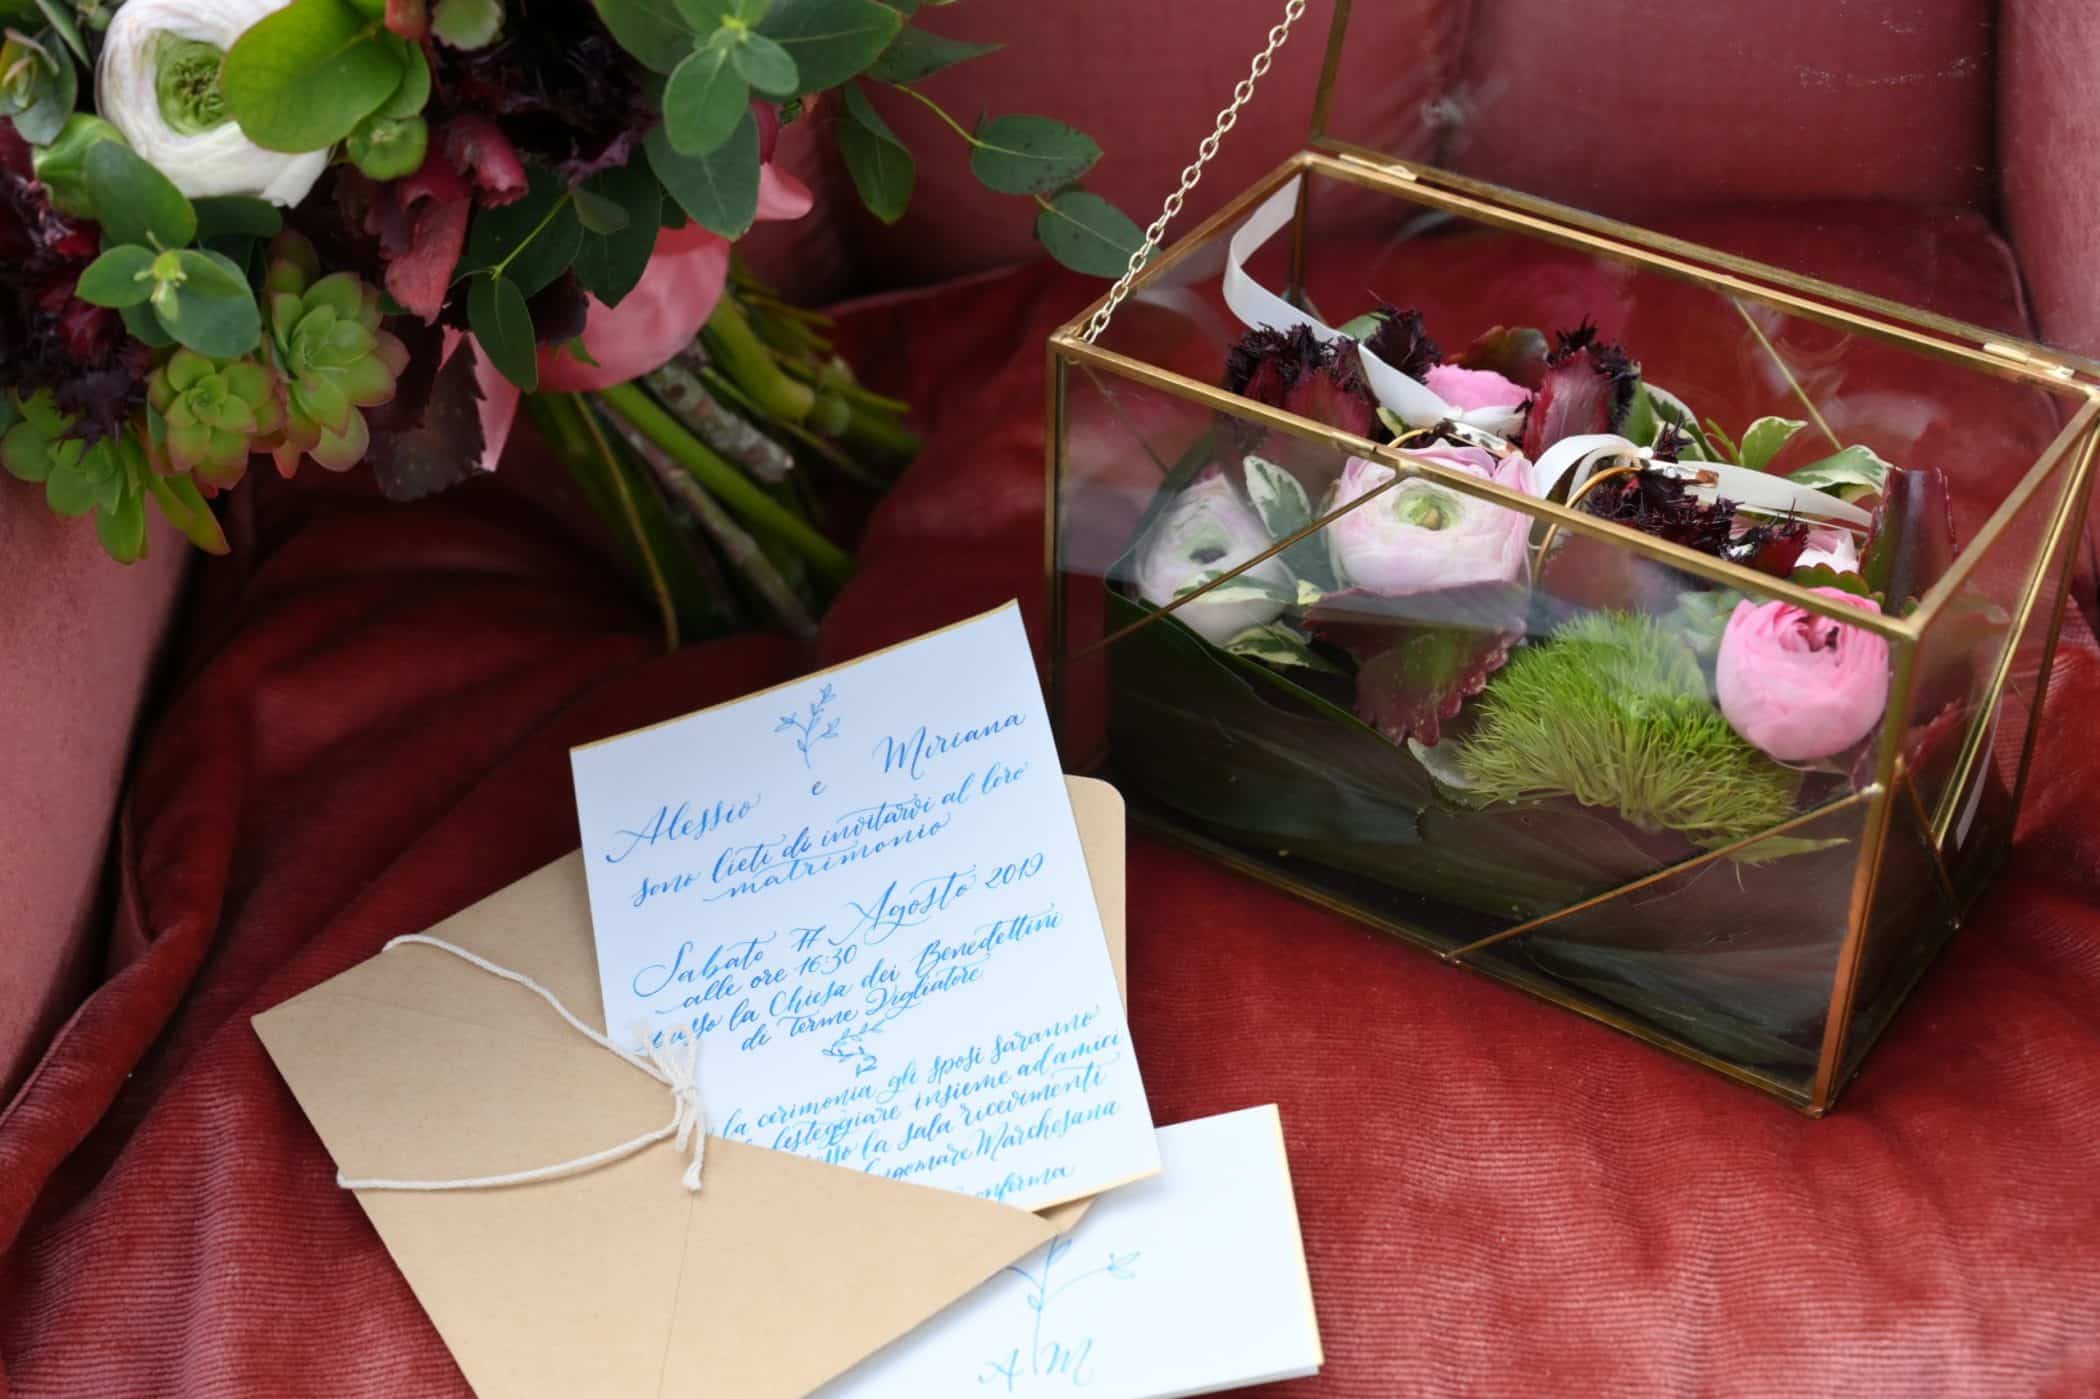 Alessio e Miriana
sono lieti di invitarvi al loro
matrimonio
Sabato 17 Agosto 2019
alle ore 16:30
la Chiesa dei Benedettini
di Terme Vigliatore
la cerimonia gli sposi saranno
festeggiare insieme ad amici
la sala ricevimenti
Marchesana
A M